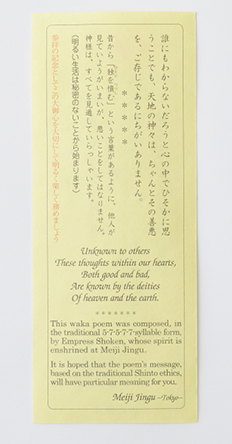 誰にもわからないだろうと心の中でひそかに思
うことでも、天地の神々は、ちゃんとその善悪
を、ご存じであるにちがいありません。
＊＊＊＊＊
昔から『独を慎む』という言葉があるように、他人が
見ていようがいまいが、悪いことをしてはなりません。
神様は、すべてを見通していらっしゃいます。
(明るい生活は秘密のないことから始まります)
Unknown to others
These thoughts within our hearts,
Both good and bad,
Are known by the deities
Of heaven and the earth.
*******
This waka poem was composed, in
the traditional 5·7·5·7·7-syllable form,
by Empress Shoken, whose spirit is
enshrined at Meiji Jingu.
It is hoped that the poem's message,
based on the traditional Shinto ethics,
will have particular meaning for you.
Meiji Jingu –Tokyo–